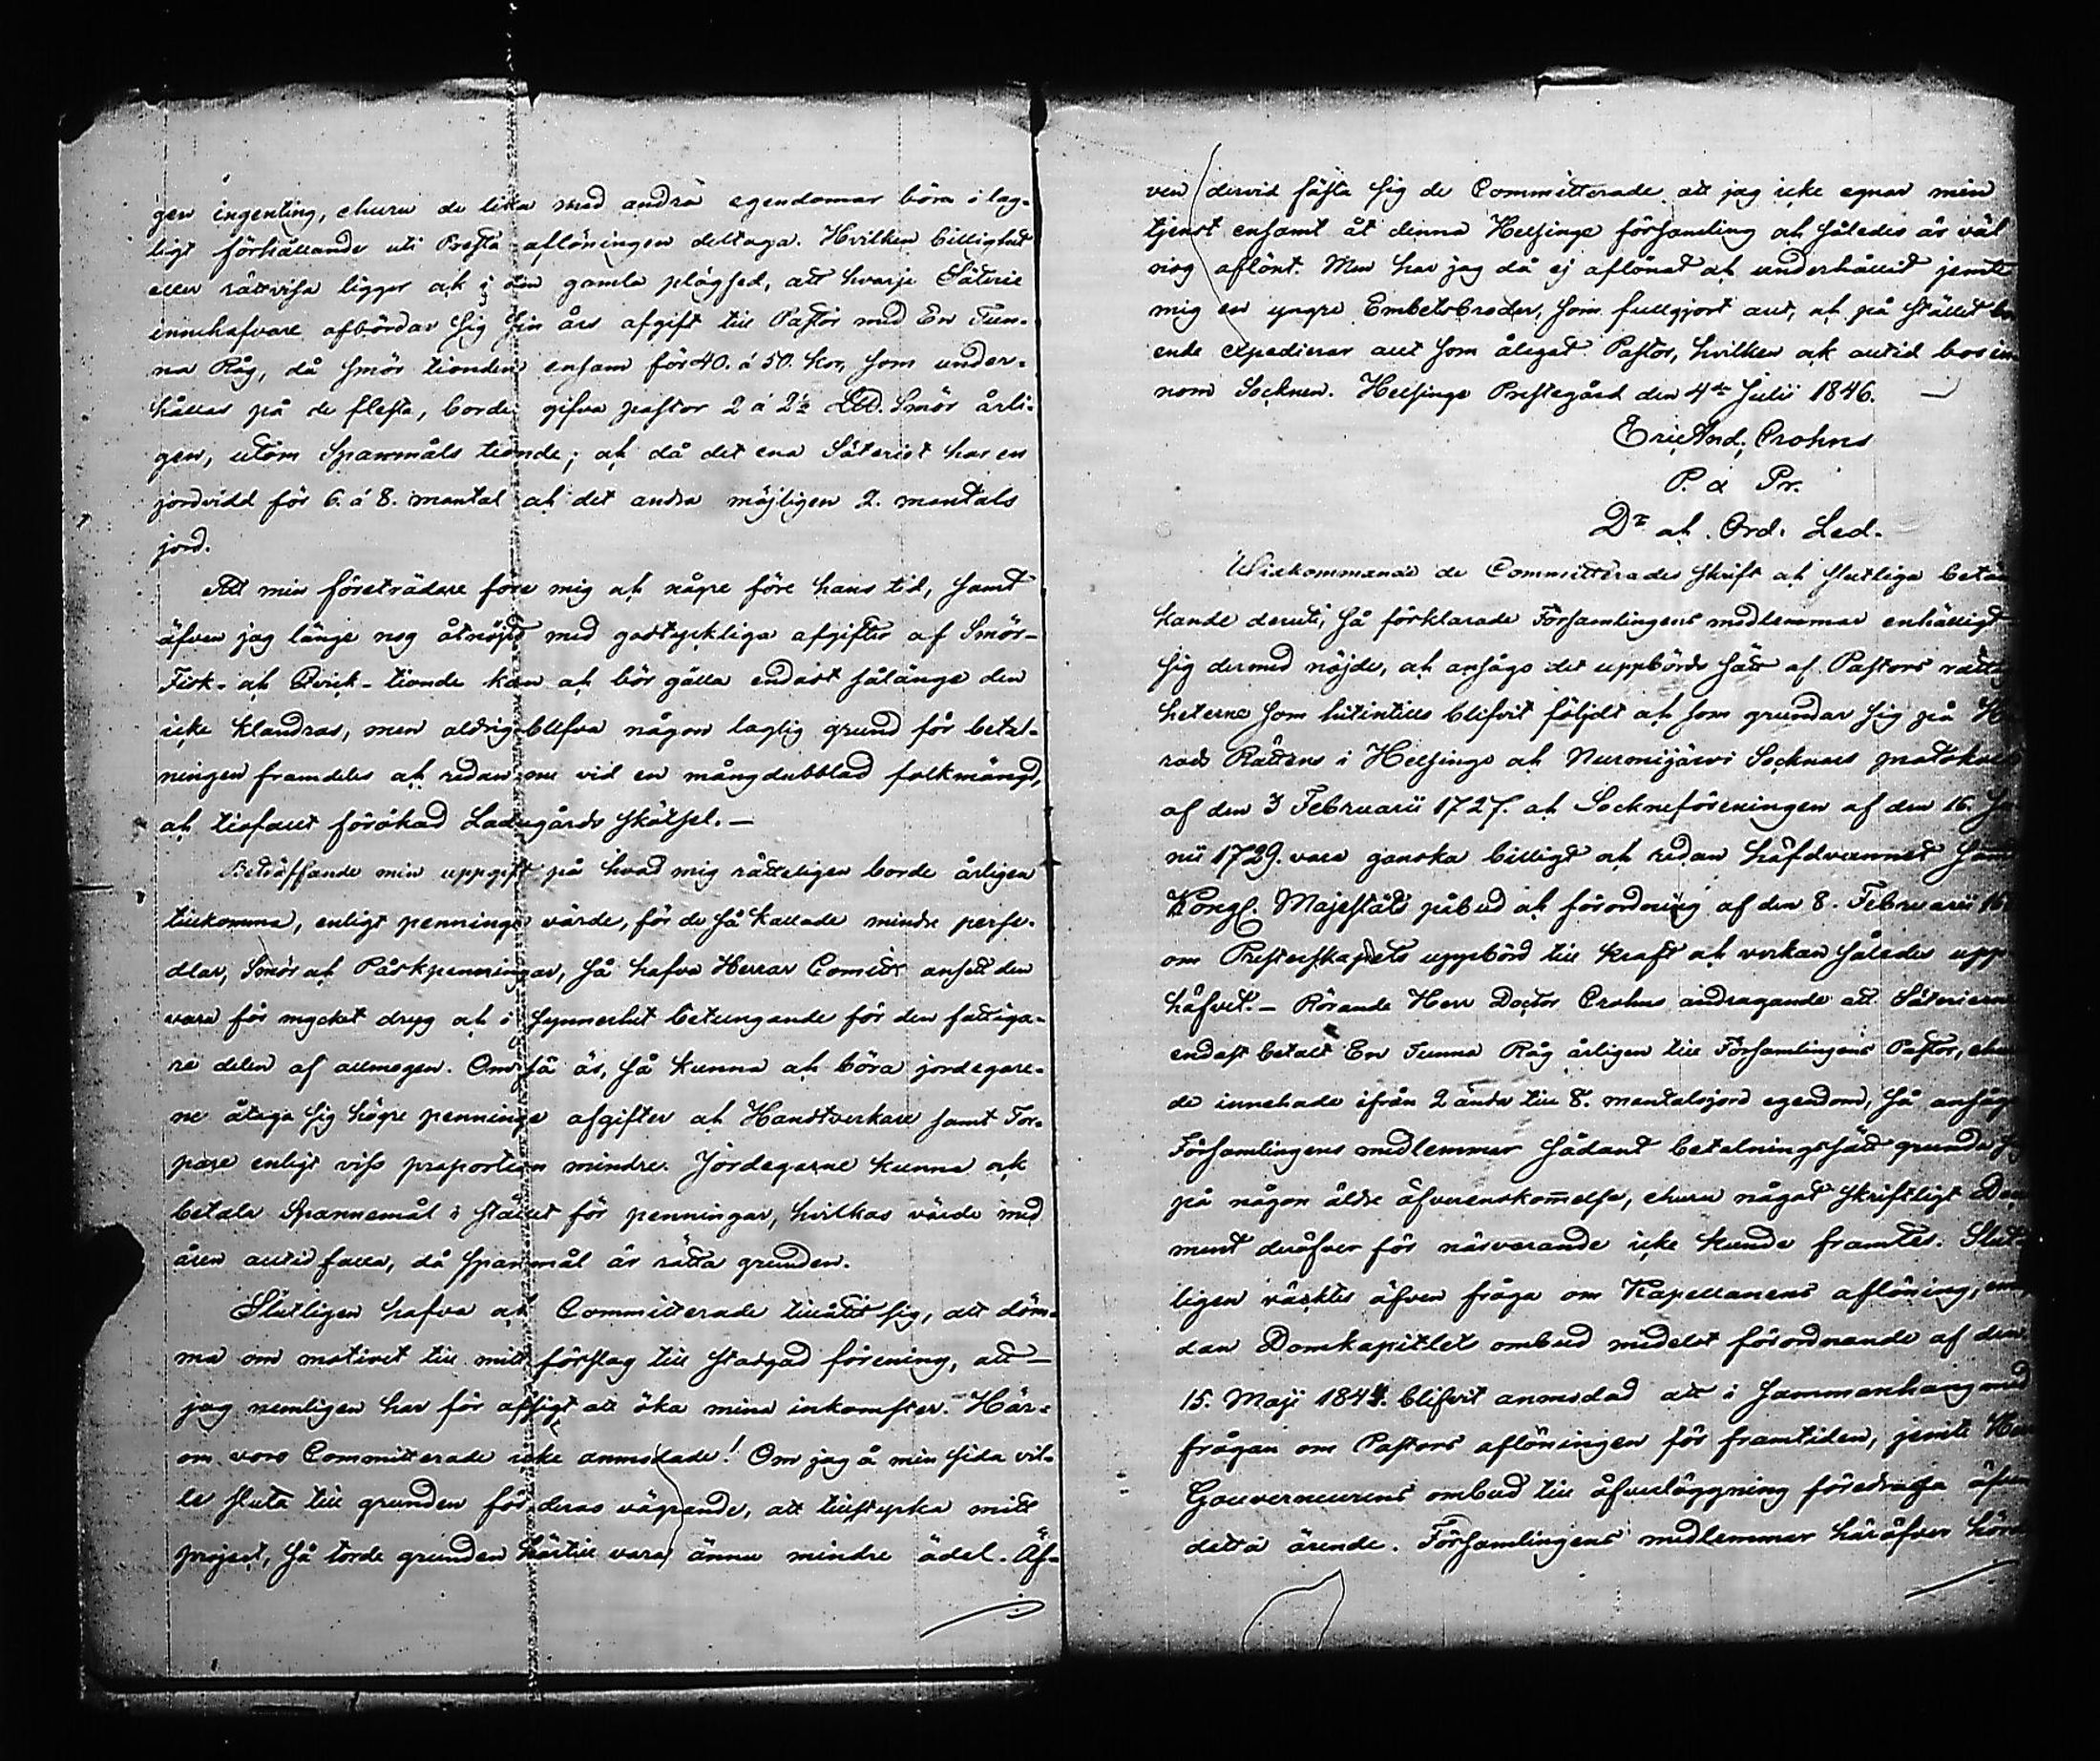 gen ingenting, churu de lika med andra egendomar böra i lag-
ligt förhållande uti Presta aflöningen deltaga. Hvilken billighet
eller rättvisa ligger ock i den gamla plägsed, att hvarje Säterie
innehafvare afbördar sig sin års afgift till Pastor med En Tun-
na Råg, då smör tionden ensam för 40. á 50. kor, som under-
hållas på de flesta, borde gifva pastor 2 á 2½ L℔. Smör årli-
gen, utom Spanmåls tionde; och då det ena Säteriet har en
jordvidd för 6. á 8. mantal och det andra möjligen 2. mantals
jord.
Att min företrädare före mig och någre före hans tid, samt
äfven jag länge nog åtnöjts med godtyckliga afgifter af Smör-
Fisk- och Qvick-tionde kan och bör gälla endast sålänge den
icke klandras, men aldrig blifva någon laglig grund för betal-
ningen framdeles och redan nu vid en mångdubblad folkmängd,
och tiofallt förökad Ladugårds skötsel. —
Beträffande min uppgift på hvad mig rätteligen borde årligen
tillkomma, enligt penninge värde, för de så kallade mindre perse-
dlar, Smör och Påskpenningar, så hafva Herrar Comitⁿ ansett den
vara för mycket dryg och i synnerhet betungande för den fattiga-
re delen af allmogen. Om så är, så kunna och böra jordegare-
ne åtaga sig högre penninge afgifter och Handtverkare samt Tor-
pare enligt viss proportion mindre. Jordegarne kunna ock
betala Spannemål i stället för penningar, hvilkas värde med
åren alltid falla, då spanmål är rätta grunden.
Slutligen hafva ock Committerade tillåtit sig, att döm-
ma om motivet till mitt förslag till stadgad förening, att —
jag nemligen har för afsigt att öka mina inkomster. Här-
om voro Committerade icke anmodade! Om jag å min sida vil-
le sluta till grunden för deras vägrande, att tillstyrka mitt
project, så torde grunden härtill vara ännu mindre ädel. Äf-
ven dervid fästa sig de Committerade att jag icke egnar min
tjenst ensamt åt denna Helsinge församling och således är väl
nog aflönt. Men har jag då ej aflönat och underhållit jemte
mig en yngre Embetsbroder, som fullgjort allt, och på stället bo
ende expedierar allt som åligat Pastor, hvilken ock alltid bor in-
nom Socknen. Helsinge Prestegård den 4de Julii 1846. —
Eric And. Crohns
P. a Pr.
Dr och Ord. Led.
Vidkommande de Committerades skrift och slutliga betän
kande deruti, så förklarade Församlingens medlemmar enhälligt
sig dermed nöjde, och ansågo det uppbörds sätt af Pastors rättig
heterne som hitintills blifvit följdt och som grundar sig på Hä
rads Rättens i Helsinge och Nurmijärvi Socknars protokoll
af den 3 Februarii 1727. och Sockneföreningen af den 16. Ju
nii 1729. vara ganska billigt och redan häfdvunnet samt
Kongl. Majestäts påbud och förordning af den 8. Februarii 16
om Presterskapets uppbörd till kraft och verkan således upp
häfvet. — Rörande Herr Doctor Crohns andragande att Säterierne
endast betalt En Tunna Råg årligen till Församlingens Pastor, ehuru
de innehade ifrån 2 ända till 8. mantalsjord egendom, så ansågo
Församlingens medlemmar sådant betalningssätt grunda sig
på någon äldre öfverenskommelse, ehuru något skriftligt Docu
ment deröfver för närvarande icke kunde framtes. Slut-
ligen väcktes äfven fråga om Kapellanens aflöning, eme
dan Domkapitlets ombud medelst förordnande af den
15. Maji 1844. blifvit anmodad att i sammanhang med
frågan om Pastors aflöningen för framtiden, jemte Herr
Gouverneurens ombud till öfverläggning föredraga äfven
detta ärende. Församlingens medlemmar häröfver hörde